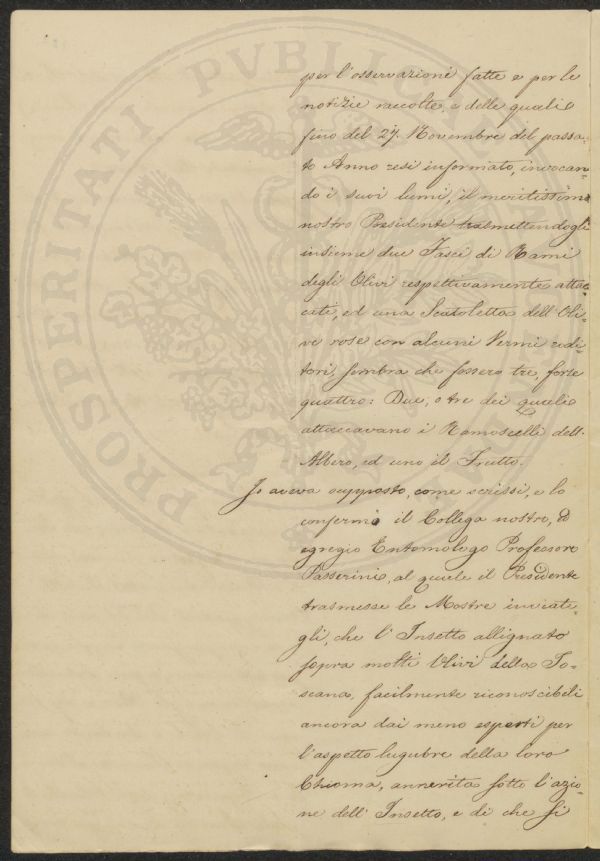 PROSPERITATI PVBLICAE
per l'osservazioni fatte e per le
notizie raccolte, e delle quali
fino del 27. Novembre del passa-
to Anno resi informato, invocan-
do i suoi lumi, il meritissimo
nostro Presidente trasmettendogli
insieme due Fasci di Rami
degli Olivi respettivamente attac-
cati, ed una Scatoletta dell' Oli-
ve rose con alcuni Vermi rodi-
tori, sembra che fossero tre, forse
quattro: Due, o tre dei quali
attaccavano i Ramoscelli dell'
Albero, ed uno il Frutto.
Io aveva supposto, come scrissi, e lo
confermò il Collega nostro, ed
egregio Entomologo Professore
Passerini, al quale il Presidente
trasmesse le Mostre inviate-
gli, che l' Insetto allignato
sopra molti Ulivi della To-
scana, facilmente riconoscibili
ancora dai meno esperti per
l'aspetto lugubre della loro
Chioma, annerita sotto l'azio-
ne dell' Insetto, e di che si